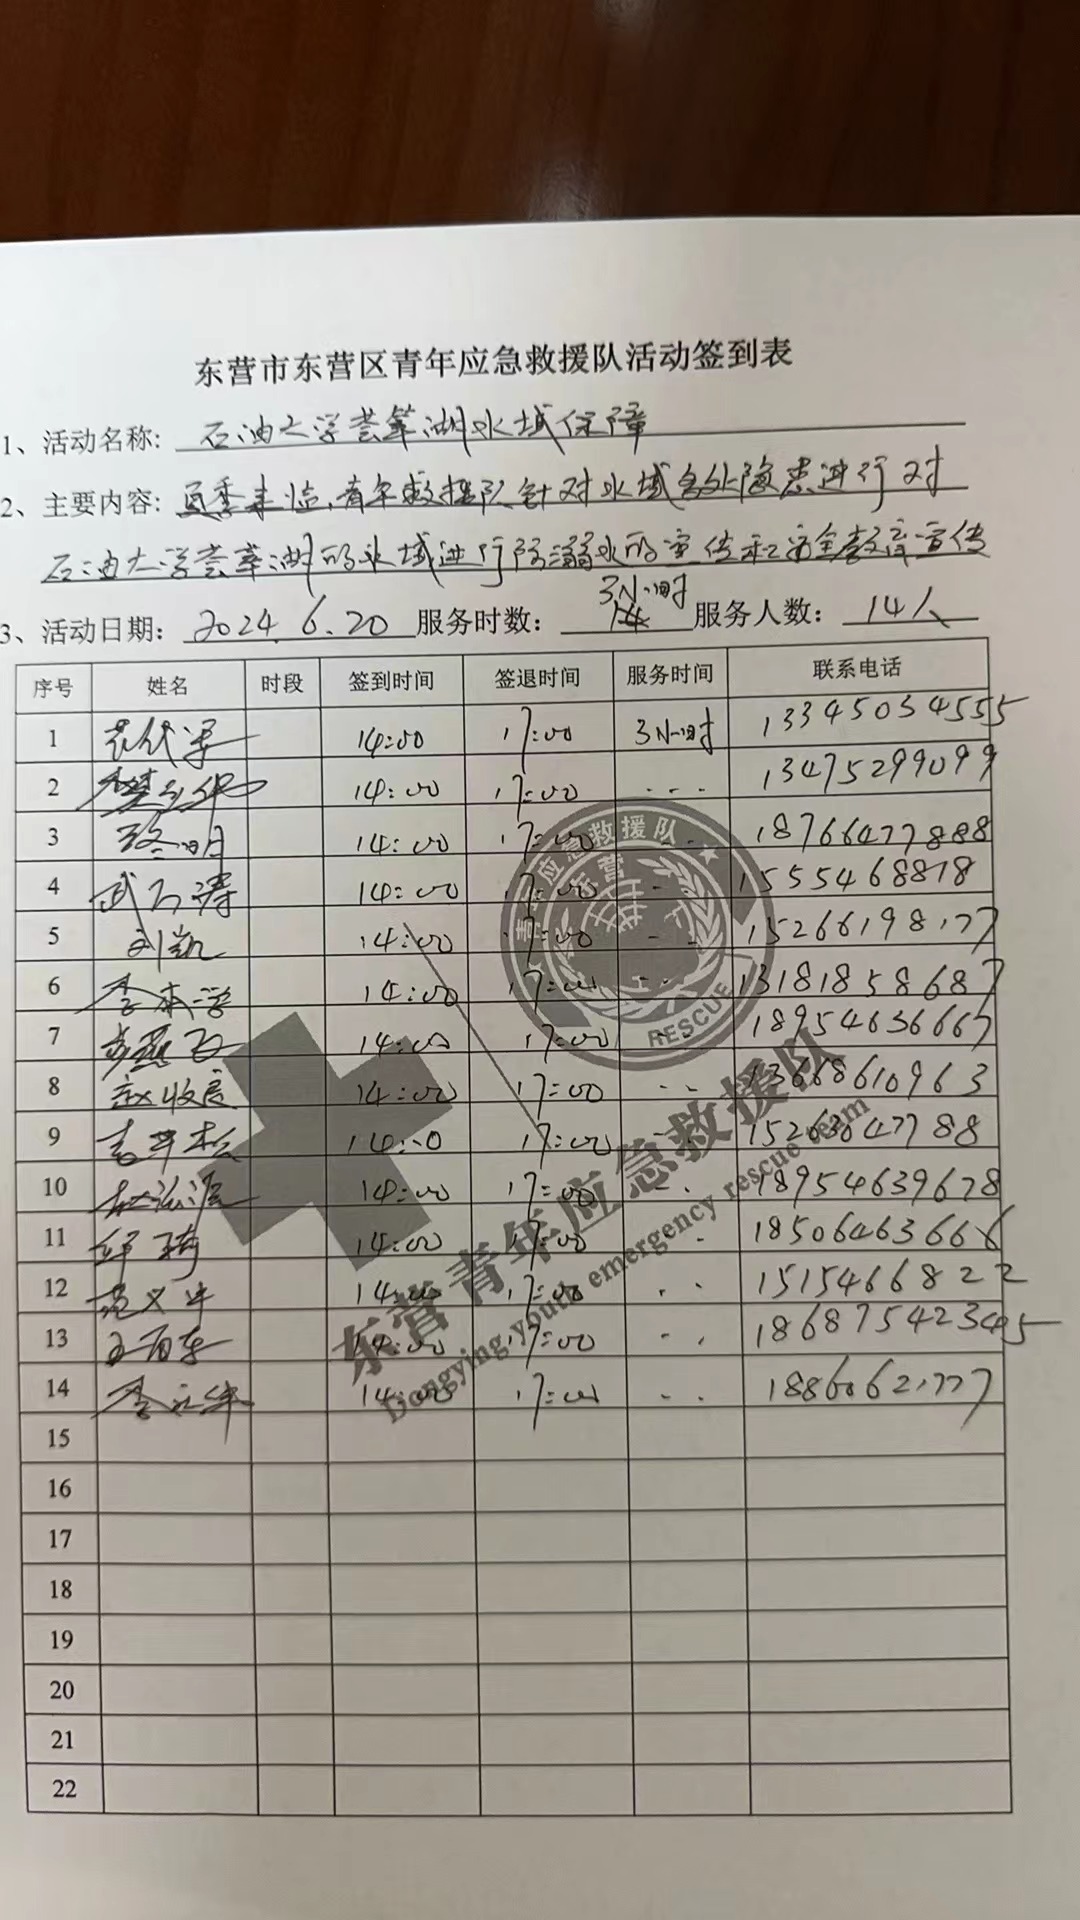 东营市东营区青年应急救援队活动签到表
1、活动名称: 石油大学荟萃湖水域保障
2、主要内容: 夏季来临,青年救援队针对水域多处隐患进行对
石油大学荟萃湖的水域进行防溺水的宣传和安全教育宣传
3小时
3、活动日期: 2024.6.20 服务时数: 14 服务人数: 14人
序号 姓名 时段 签到时间 签退时间 服务时间 联系电话
1 14:00 17:00 3小时 13345034555
2 14:00 17:00 13475299099
3 14:00 17:00 18766477888
4 14:00 17:00 1555468818
5 刘凯 14:00 17:00 15266198177
6 李本学 14:00 17:00 13181858687
7 14:00 17:00 18954636667
8 赵收良 14:00 17:00 13668610963
9 14:00 17:00 15263647788
10 14:00 17:00 18954639678
11 14:00 17:00 18506463666
12 范义中 14:00 17:00 1515466822
13 王百东 14:00 17:00 18687542345
14 李永华 14:00 17:00
15
16
17
18
19
20
21
22
青年应急救援队
东营
RESCUE
东营青年应急救援队
Dongying youth emergency rescue team